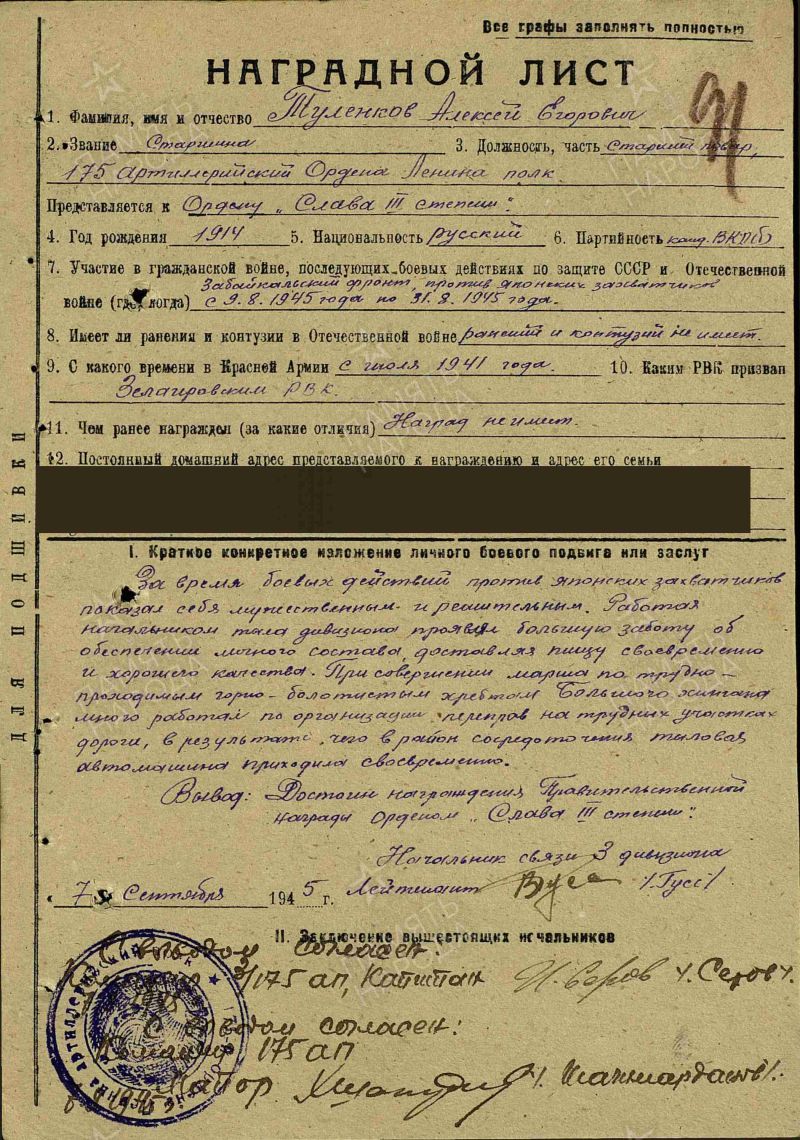 Все графы заполнять полностью
НАГРАДНОЙ ЛИСТ
91
1. Фамилия, имя и отчество Туленков Алексей Егорович
2. Звание Старшина 3. Должность, часть Старший повар,
175 Артиллерийский Ордена Ленина полк
Представляется к Ордену „Слава III степени".
4. Год рождения 1914 5. Национальность русский 6. Партийность канд. ВКП(б)
7. Участие в гражданской войне, последующих боевых действиях по защите СССР и Отечественной
Забайкальский фронт, против японских захватчиков
войне (где, когда) с 9.8.1945 года по 31.8.1945 года.
8. Имеет ли ранения и контузии в Отечественной войне ранений и контузий не имеет.
9. С какого времени в Красной Армии с июля 1941 года. 10. Каким РВК призван
РВК.
11. Чем ранее награжден (за какие отличия) Наград не имеет.
12. Постоянный домашний адрес представляемого к награждению и адрес его семьи
ДЛЯ ПОДШИВКИ
I. Краткое конкретное изложение личного боевого подвига или заслуг
За время боевых действий против японских захватчиков
показал себя мужественным и решительным. Работая
начальником тыла дивизиона проявил большую заботу об
обеспечении личного состава, доставляя пищу своевременно
и хорошего качества. При совершении марша по трудно-
проходимым горно-болотистым хребтам Большого Хингана
много работал по организации переправ на трудных участках
дороги, в результате чего в район сосредоточения тыловая
автомашина приходила своевременно.
Вывод: Достоин награждения Правительственной
награды Орденом „Слава III степени".
Начальник связи 3 дивизиона
7 Сентября 1945 г. Лейтенант /Гусс/
II. Заключение вышестоящих начальников
С выводом согласен:
Командир 3/175 ап, Капитан Н. Серов /Серов/.
С выводом согласен:
Командир 175 ап
Майор